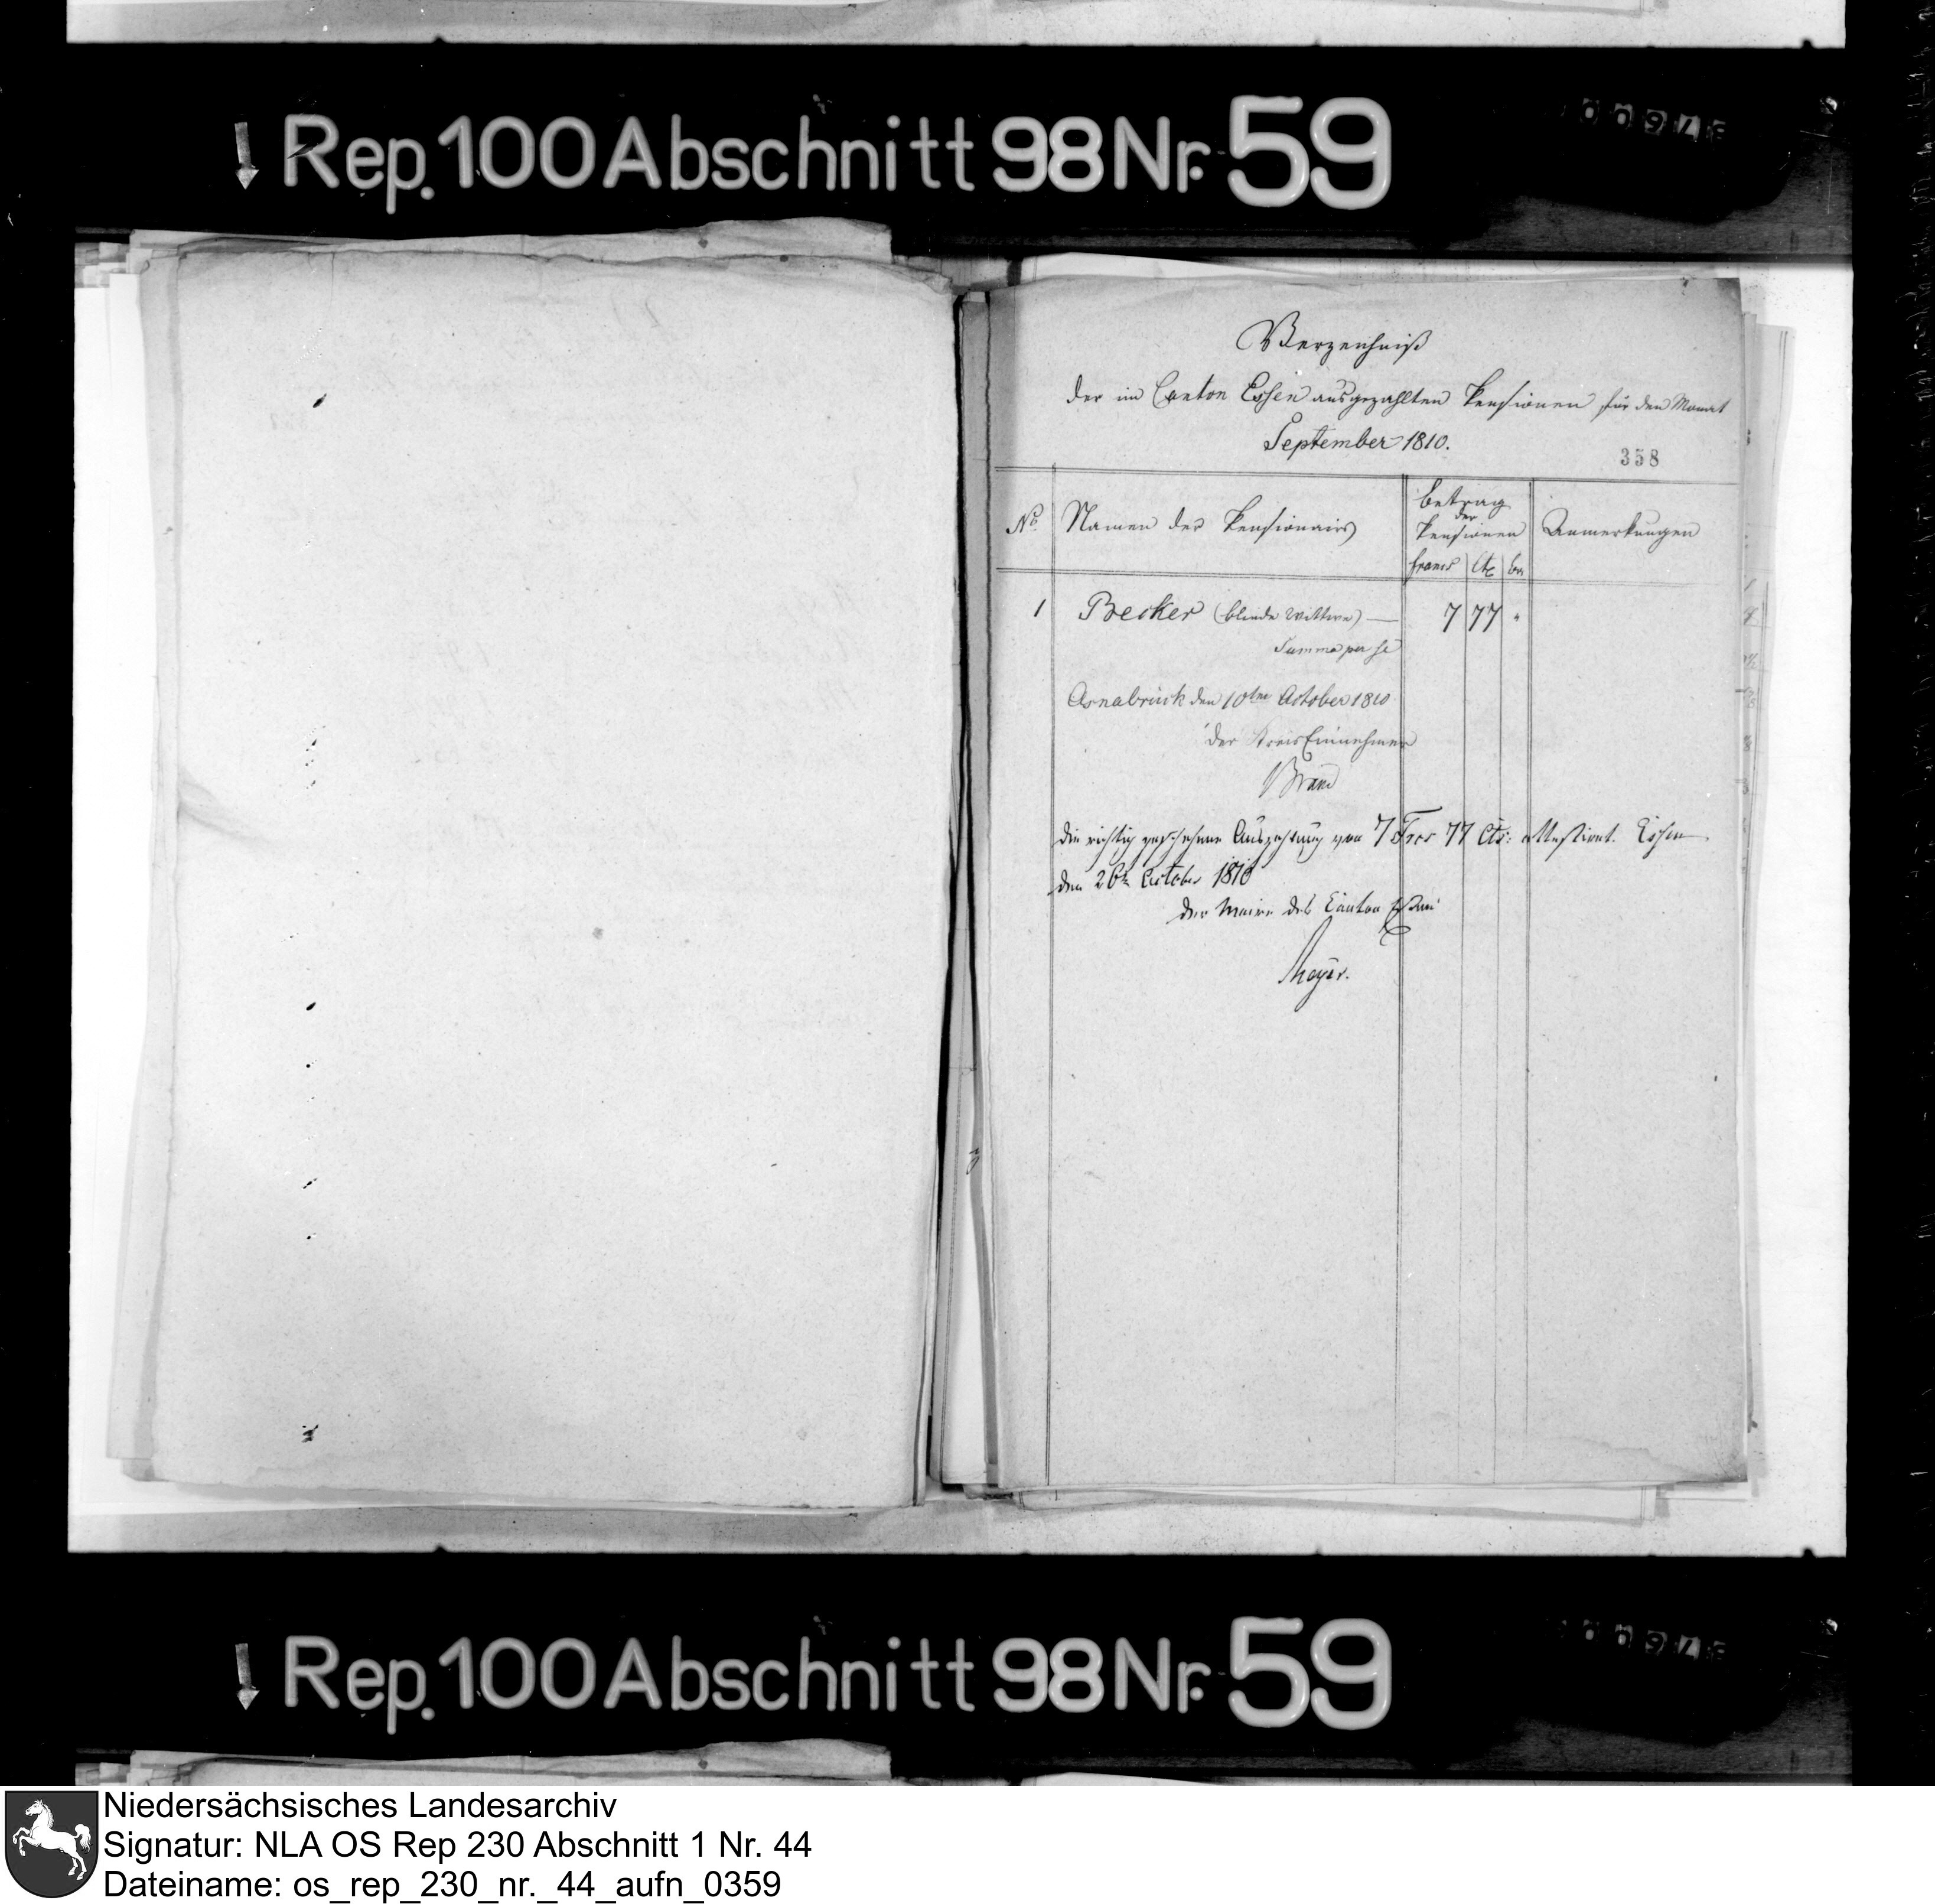 Rep. 100 Abschnitt 98 Nr. 59
Verzeichniß
der im Canton Essen ausgezahlten Pensionen für den Monat
September 1810.
358
No. Namen der Pensionairs betrag der Pensionen Anmerkungen
francs Cts
1 Becker (blinde Wittwe) — 7 77 "
Summa per se
Osnabrück den 10ten October 1810
der KreisEinnehmer
Brand
Die richtig geschehene Auszahlung von 7 Frcs 77 Cts: attestiret. Essen
den 26n October 1810
Der Maire des Canton Essen
Meyer.
Rep. 100 Abschnitt 98 Nr. 59
Niedersächsisches Landesarchiv
Signatur: NLA OS Rep 230 Abschnitt 1 Nr. 44
Dateiname: os_rep_230_nr._44_aufn_0359